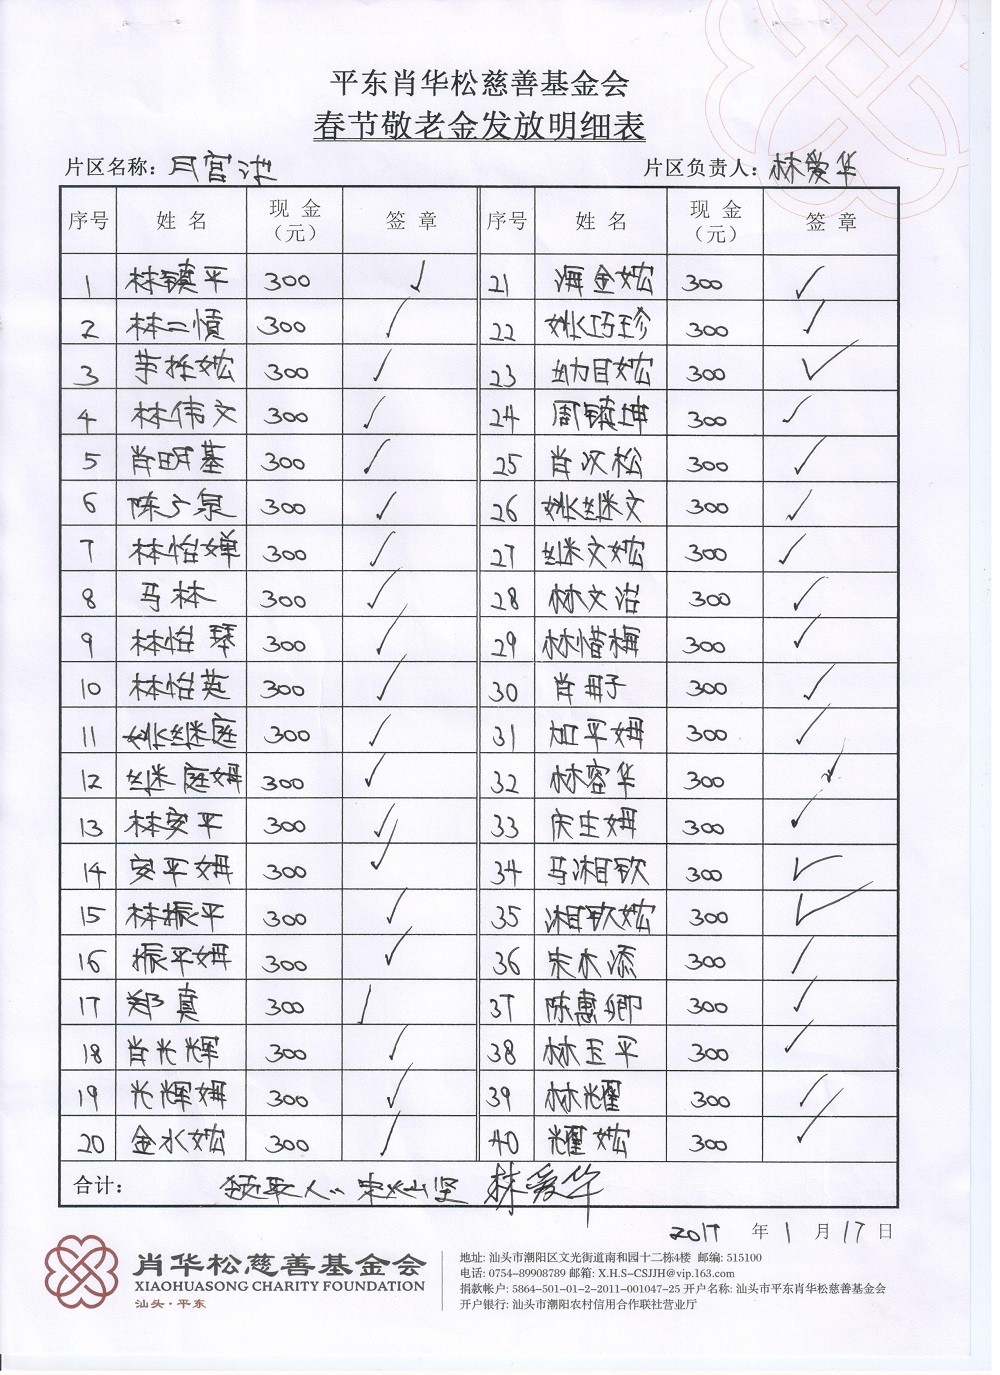 平东肖华松慈善基金会
春节敬老金发放明细表
片区名称：月宫池 片区负责人：林爱华
序号 姓名 现金（元） 签章 序号 姓名 现金（元） 签章
1 林镇平 300 ✓ 21 海金 300 ✓
2 林二愤 300 ✓ 22 姚巧珍 300 ✓
3 300 ✓ 23 幼目 300 ✓
4 林伟文 300 ✓ 24 周镇坤 300 ✓
5 肖明基 300 ✓ 25 肖汉松 300 ✓
6 陈广泉 300 ✓ 26 姚继文 300 ✓
7 林怡婵 300 ✓ 27 继文 300 ✓
8 马林 300 ✓ 28 林文浩 300 ✓
9 林怡琴 300 ✓ 29 林惜梅 300 ✓
10 林怡英 300 ✓ 30 肖毌子 300 ✓
11 姚继庭 300 ✓ 31 平姆 300 ✓
12 继庭姆 300 ✓ 32 林容华 300 ✓
13 林安平 300 ✓ 33 庆生姆 300 ✓
14 安平姆 300 ✓ 34 马湘钦 300 ✓
15 林振平 300 ✓ 35 湘钦 300 ✓
16 振平姆 300 ✓ 36 宋木添 300 ✓
17 郑真 300 ✓ 37 陈惠卿 300 ✓
18 肖光辉 300 ✓ 38 林玉平 300 ✓
19 光辉姆 300 ✓ 39 林耀 300 ✓
20 金水 300 ✓ 40 耀 300 ✓
合计： 领取人： 林爱华
2017 年 1 月 17 日
肖华松慈善基金会
XIAOHUASONG CHARITY FOUNDATION
汕头·平东
地址: 汕头市潮阳区文光街道南和园十二栋4楼 邮编: 515100
电话: 0754-89908789 邮箱: X.H.S-CSJJH@vip.163.com
捐款帐户: 5864-501-01-2-2011-001047-25 开户名称: 汕头市平东肖华松慈善基金会
开户银行: 汕头市潮阳农村信用合作联社营业厅